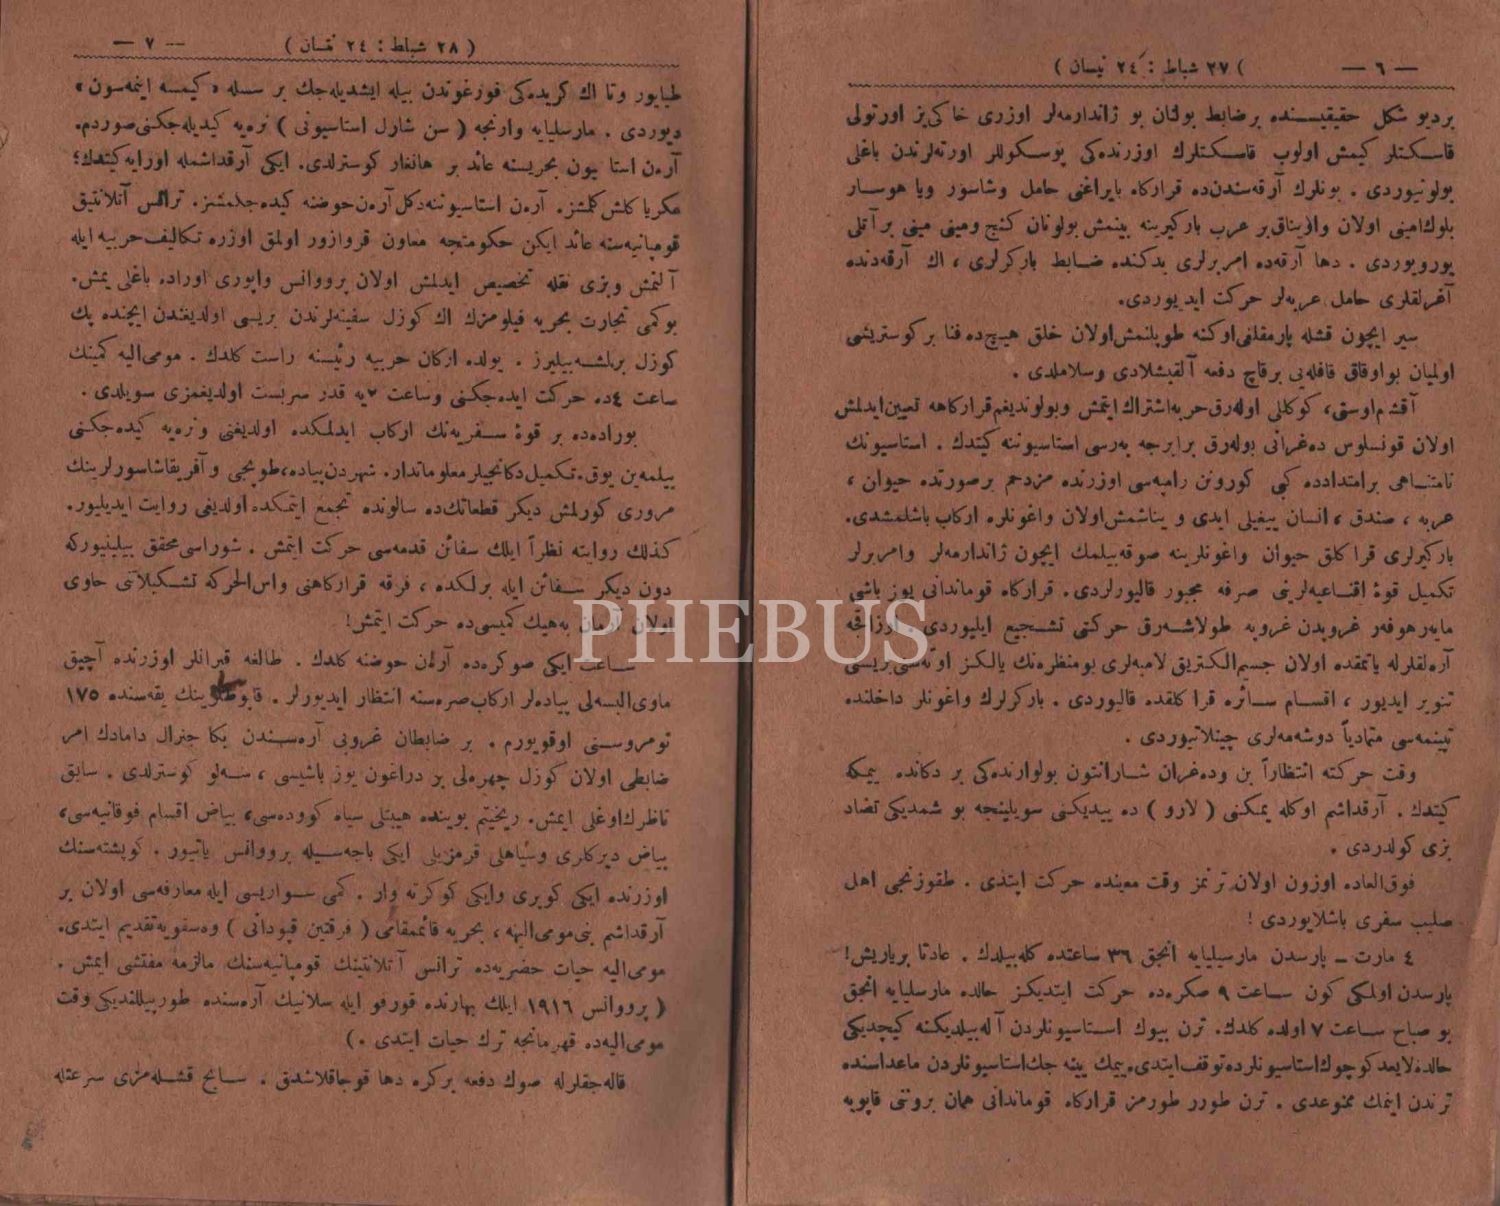 — ٦ —
( ٢٧ شباط : ٢٤ نيسان )
برديو شكل حقيقيسنده برضابط بولنان بو ژاندارمه‌لر اوزرى خاكى‌بز اورتولى
قاسكتلر كيمش اولوب قاسكتلرك اوزرنده‌كى پوسكوللر اورته‌لرندن باغلى
بولونيوردى . بونلرك آرقه‌سندن‌ده قراركاه بايراغنى حامل وشاسور ويا هوسار
بلوك‌امينى اولان واوىناق‌بر عرب باركيرينه بينمش بولونان كنج ومينى مينى برآتلى
يورويوردى . دها آرقه‌ده امربرلرى يدكنده ضابط باركرلرى ، اك آرقه‌دنده
آغرلقلرى حامل عربه‌لر حركت ايديوردى.
سير ايچون قشله پارمقلغى‌اوكنه طوپلنمش‌اولان خلق هيچ‌ده فنا بركوستريشى
اولميان بواوفاق قافله‌يى برقاچ دفعه آلقيشلادى وسلاملدى .
آقشم‌اوستى، كوكللى اوله‌رق‌حربه‌اشتراك‌ايتمش وبولونديغم‌قراركاهه تعيين‌ايدلمش
اولان قونسلوس ده‌غرانى بوله‌رق برابرجه به‌رسى استاسيوننه كيتدك . استاسيونك
نامتناهى برامتدادده كبى كورونن رامپه‌سى اوزرنده مزدحم برصورتده حيوان ،
عربه ، صندق ، انسان ييغيلى ايدى و يناشمش‌اولان واغونلره اركاب باشلمشدى.
باركيرلرى قراكلق حيوان واغونلرينه صوقه‌بيلمك ايچون ژاندارمه‌لر وامربرلر
تكميل قوهٔ اقناعيه‌لرينى صرفه مجبور قاليورلردى. قراركاه قوماندانى يوز باشى
مايه‌رهوفه‌ر غروبدن غروبه طولاشه‌رق حركتى تشجيع ايليوردى. ارزاقچه
آره‌لقلرله ياتمقده اولان جسيم‌الكتريق لامبه‌لرى بومنظره‌نك يالكز اوته‌سنى‌بريسنى
تنوير ايديور ، اقسام سائره قراكلقده قاليوردى . باركرلرك واغونلر داخلنده
تپينمه‌سى متمادياً دوشمه‌لرى چيتلاتيوردى .
وقت حركته انتظاراً بن وده‌غران شارانتون بولوارنده‌كى بر دكانده ييمكه
كيتدك . آرقداشم اوكله يمكنى ( لارو ) ده ييديكنى سويلينجه بو شمديكى تضاد
بزى كولدردى .
فوق‌العاده اوزون اولان ترنمز وقت معينده حركت ايتدى . طقوزنجى اهل
صليب سفرى باشلايوردى !
٤ مارت – پارسدن مارسيليايه انجق ٣٦ ساعتده كله‌بيلدك . عادتا برياريش!
پارسدن اولكى كون ساعت ٩ صكره‌ده حركت ايتديكز حالده مارسليايه انجق
بو صباح ساعت ٧ اولده كلدك. ترن بيوك استاسيونلردن آله‌بيلديكنه كيچديكى
حالده‌لايعد كوچوك‌استاسيونلرده‌توقف‌ايتدى.ييمك يينه جك‌استاسيونلردن ماعداسنده
ترندن اينمك ممنوعدى . ترن طورر طورمز قراركاه قوماندانى همان برونتى قاپويه
— ٧ —
( ٢٨ شباط : ٢٤ نيسان )
طيايور وتا اك كريده‌كى فورغوندن بيله ايشديله‌جك بر سسله «كيمسه اينمه‌سون»
ديوردى . مارسليايه وارنجه ( سن شارل استاسيونى ) نره‌يه كيديله‌جكنى‌صوردم.
آره‌ن استاسيون بحريسنه عائد بر هانغار كوسترلدى. ايكى آرقداشمله اورايه‌كيتدك؛
مكرياكلش‌كلمشز. آره‌ن استاسيوننه‌دكل‌آره‌ن‌حوضنه كيده‌جكمشز. ترانس آتلانتيق
قومپانيه‌سنه عائد ايكن حكومتجه معاون قروازور اولمق اوزره تكاليف‌حربيه ايله
آلنمش وبزى نقله تخصيص ايدلمش اولان پرووانس واپورى اوراده باغلى يمش.
بوكمى تجارت بحريه فيلومزك اك كوزل سفينه‌لرندن بريسى اولديغندن ايچنده پك
كوزل يرلشه‌بيليرز . يولده اركان حربيه رئيسنه راست كلدك . مومى‌اليه كمينك
ساعت ٤ده حركت ايده‌جكنى وساعت ٢يه قدر سربست اولديغمزى سويلدى .
بوراده‌ده بر قوهٔ سفريه‌نك اركاب ايدلمكده اولديغنى ونره‌يه كيده‌جكنى
بيلمه‌ين يوق.تكميل‌دكانجيلر معلوماتدار. شهردن‌پياده،طوپجى و آفريقاشاسورلرينك
مرورى كورلمش ديكر قطعاتك‌ده سالونده تجمع ايتمكده‌اولديغى روايت ايديليور.
كذلك روايته نظراً ايلك سفائن قدمه‌سى حركت ايتمش . شوراسى‌محقق بيلينيوركه
دون ديكر سفائن ايله برلكده ، فرقه قراركاهنى واس‌الحركه تشكيلاتنى حاوى
اولان آرمان به‌هيك كميسى‌ده حركت ايتمش!
ساعت ايكى صوكره‌ده آره‌ن حوضنه كلدك . طالغه قيرانلر اوزرنده آچيق
ماوى‌البسه‌لى پياده‌لر اركاب‌صره‌سنه انتظار ايديورلر . قاپوطلرينك يقه‌سنده ١٧٥
نومروسنى اوقويورم . بر ضابطان غروبى آره‌سندن يكا جنرال دامادك امر
ضابطى اولان كوزل چهره‌لى بر دراغون يوز باشيسى ، سه‌لو كوسترلدى . سابق
ناظرك‌اوغلى ايمش. ريختيم بوينده هيبتلى سياه كووده‌سى، بياض اقسام فوقانيه‌سى،
بياض ديركلرى وسياهلى قرمزيلى ايكى باجه‌سيله پرووانس ياتيور . كوپشته‌سنك
اوزرنده ايكى كوپرى وايكى كوكرته وار . كمى سواريسى ايله معارفه‌سى اولان بر
آرقداشم بنى‌مومى‌اليه ، بحريه قائممقامى ( فرقتين قپودانى ) وه‌سقويه‌تقديم ايتدى.
مومى‌اليه حيات حضريه‌ده ترانس آتلانتيك قومپانيه‌سنك مالزمه مفتشى ايمش .
( پرووانس ١٩١٦ ايلك بهارنده قورفو ايله سلانيك آره‌سنده طورپيللنديكى وقت
مومى‌اليه‌ده قهرمانجه ترك حيات ايتدى . )
قاله‌جقلرله صوك دفعه بركره دها قوجاقلاشدق . سابح قشله‌مزى سرعتله
PHEBUS